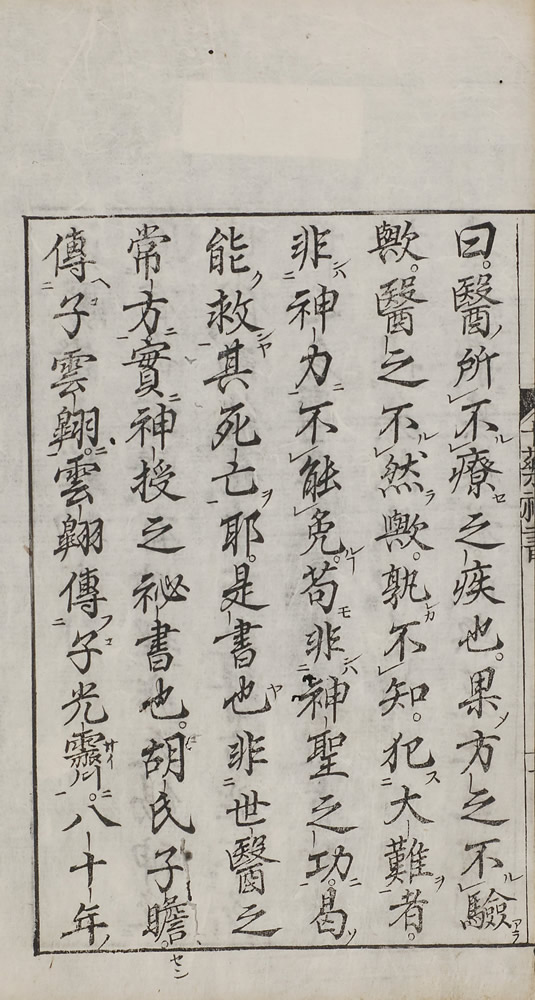 曰。醫所不療之疾也。果方之不驗
歟。醫之不然歟。孰不知。犯大難者。
非神力不能免。苟非神聖之功。曷
能救其死亡耶。是書也非世醫之
常方。實神授之祕書也。胡氏子瞻。
傳子雲翶。雲翶傳子光霽。八十年